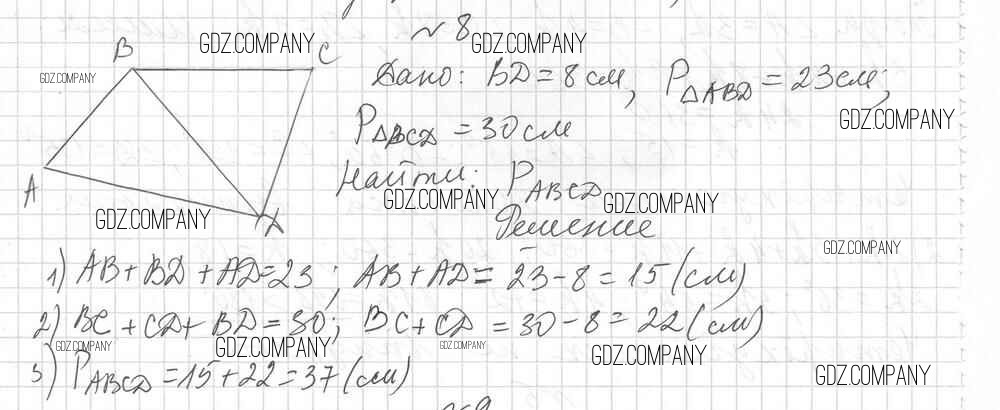 №8
B C
Дано: BD = 8 см, P△ABD = 23 см;
P△BCD = 30 см
Найти: PABCD
A
D
Решение
1) AB + BD + AD = 23; AB + AD = 23 - 8 = 15 (см)
2) BC + CD + BD = 30; BC + CD = 30 - 8 = 22 (см)
3) PABCD = 15 + 22 = 37 (см)
№9
GDZ.COMPANY
GDZ.COMPANY
GDZ.COMPANY
GDZ.COMPANY
GDZ.COMPANY
GDZ.COMPANY
GDZ.COMPANY
GDZ.COMPANY
GDZ.COMPANY
GDZ.COMPANY
GDZ.COMPANY
GDZ.COMPANY
GDZ.COMPANY